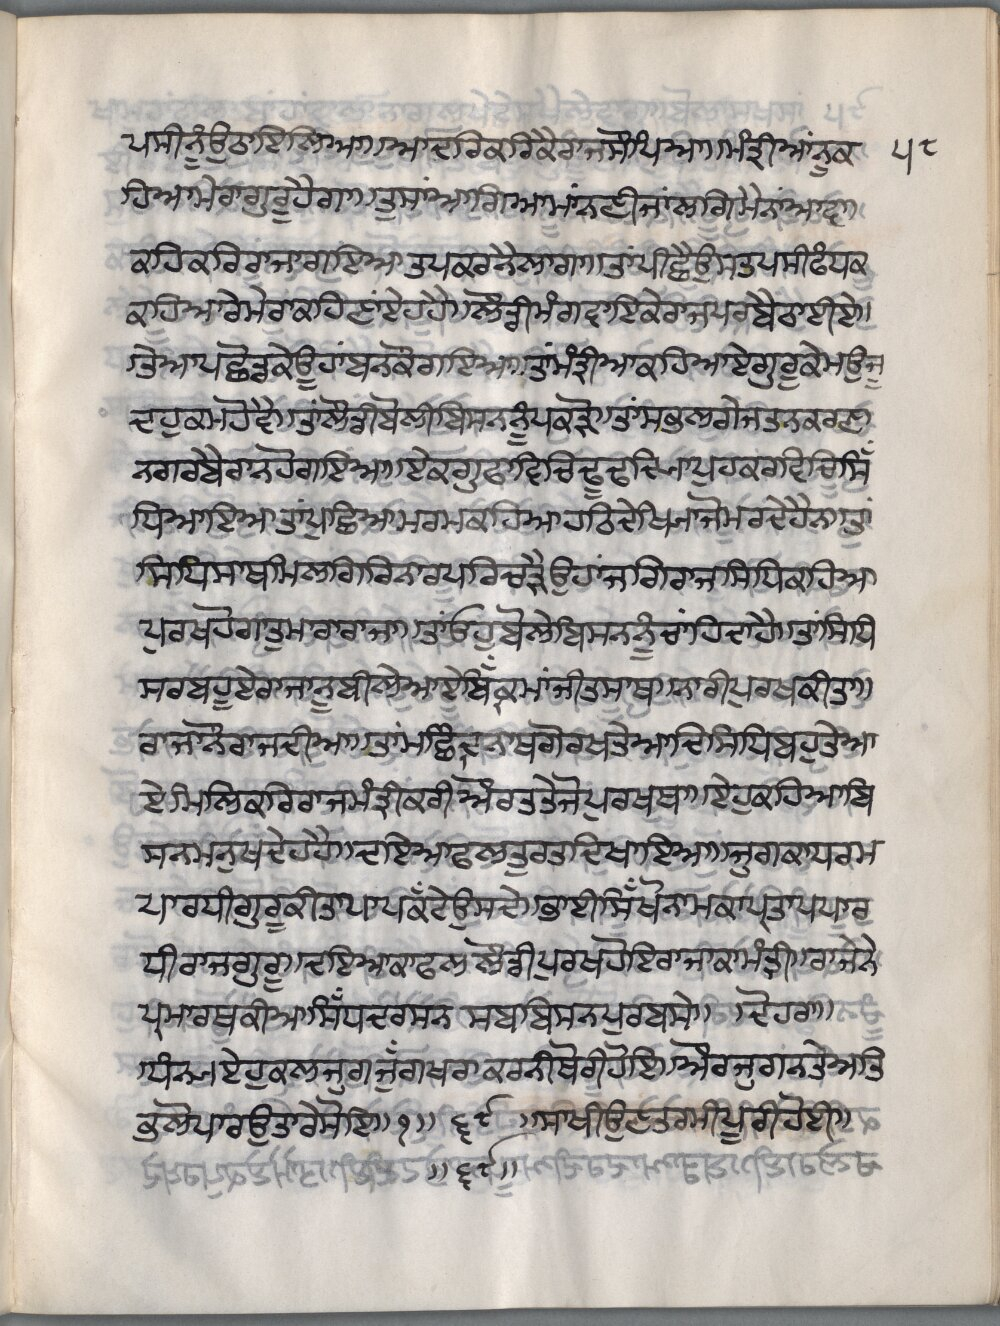 ਪਸੀਨੂੰਉਠਾਇਲਿਆ॥ਆਦਰਿਕਰਿਕੈਰਾਜਸੌਪਿਆ॥ਮੰਤ੍ਰੀਆਂਨੂਕ ੫੮
ਹਿਆਮੇਰਾਗੁਰੂਹੈਗਾ॥ਤੁਸਾਂਆਗਿਆਮਾਂਨਣੀਜਾਂਲਗਿਮੈਨਾਂਆਵਾ
ਕਹਿਕਰਿਰਾਜਾਗਇਆ ਤਪਕਰਨੇਲਾਗਾ॥ਤਾਂਪੀਛੈਉਸਤਪਸੀਢੰਪਕ
ਕਹਿਆਰੇਮੇਰਾਕਹਿਣਾਂਏਹਹੈ॥ਲੌਤ੍ਰੀਮੰਗਵਾਇਕੇਰਾਜਪਰਬੈਠਾਈਏ।
ਤੇਆਪਛੋਡਕੇਊਹਾਂਬਨਕੋਗਇਆ॥ਤਾਂਮੰਤ੍ਰੀਆਕਹਿਆਏਗੁਰੂਕੇਮਉਜੂ
ਦਹੁਕਮਹੋਵੈ॥ਤਾਂਲੌਤ੍ਰੀਬੋਲੀਬਿਸਨਨੂੰਪਕੜੋ॥ਤਾਂਸਭਲਗੇਜਤਨਕਰਣ
ਨਗਰਬੈਰਾਨਹੋਗਇਆ॥ਏਕਗੁਫਾਵਿਚਿਢੂਢਦਿਆ ਪਹਕਰਵਿਚਿਸਿੰ
ਧਿਆਇਆਤਾਂਪੁਛਿਆਮਰਮਕਹਿਆਹਠਿਦੇਖਿਜਾਜੋਮਰਦੇਹੈਨ॥ਤਾਂ
ਸਿਧਿਸਾਥੀਮਿਲਗਿਰਿਨਾਰਪਰਿਚੜੈਊਹਾਂਜਗਿਰਾਜਸਿਧਿਕਹਿਆ
ਪੁਰਖਹੋਗਾਤੁਮਾਰਾਰਾਜਾ॥ਤਾਂਓਹੁਬੋਲੇਬਿਸਨਨੂੰਚਾਂਹਿਦਾਹੈ॥ਤਾਂਸਿਧਿ
ਸਰਬਹੂਏਰਾਜਾਨੂਬੀਲੇਆਏਬਿੱਕ੍ਰਮਾਂਜੀਤਸਾਥ॥ਨਾਰੀਪੁਰਖਕੀਤਾ॥
ਰਾਜਾਨੇਰਾਜਦੀਆ॥ਤਾਂਮਛਿੰਦ੍ਰਨਾਥਗੋਰਖਤੇਆਦਿਸਿਧਿਬਹੁਤੇਆ
ਏ।ਮਿਲਿਕਰਿਰਾਜਮੰਤ੍ਰੀਕਰੀਔਰਤਤੇਜੋਪੁਰਖਥਾ॥ਏਹੁਕਹਿਆਬਿ
ਸਨਮਨੁਖਦੇਹਹੈ॥ਦਇਆਫਲਤੁਰਤਦਿਖਾਇਆ॥ਜੁਗਕਾਧਰਮ
ਪਾਰਧੀਗੁਰੂਕੀਤਾਪਾਪਕੱਟੇਉਸਦੇ।ਭਾਈਸਿੰਘੋਨਾਮਕਾਪ੍ਰਤਾਪਪਾਰ
ਧੀਰਾਜਗੁਰੂ॥ਦਇਆਕਾਫਲਲੌਤ੍ਰੀਪੁਰਖਹੋਇਰਾਜਾਕਾਮੰਤ੍ਰੀ॥ਰਾਜੇਨੇ
ਪ੍ਰਮਾਰਥਕੀਆਸਿੰਧਦਰਸਨ ਸਬਬਿਸਨਪੁਰਬਸੇ॥ ॥ਦੋਹਰਾ॥
ਧੰਨਿਏਹੁਕਲਜੁਗਜੁੱਗਖਰਾਕਰਨੀਥੋਰੀਹੋਇ।ਔਰਜੁਗਨਤੇਅਤਿ
ਭਲੋਪਾਰਉਤਾਰੇਸੋਇ॥੧॥ ੬੯ ॥ਸਾਖੀਉਣਤਰਸੀਪੂਰੀਹੋਈ॥
॥੬੯॥